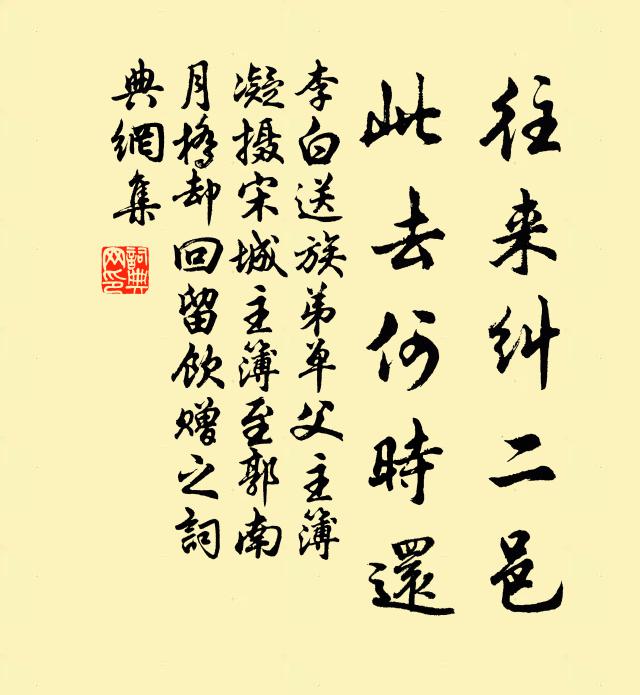 往来糾二邑
此去何時還
李白送族弟单父主簿
凝摄宋城主簿至郭南
月橋却回留飲赠之詞
典網集
詞典網印